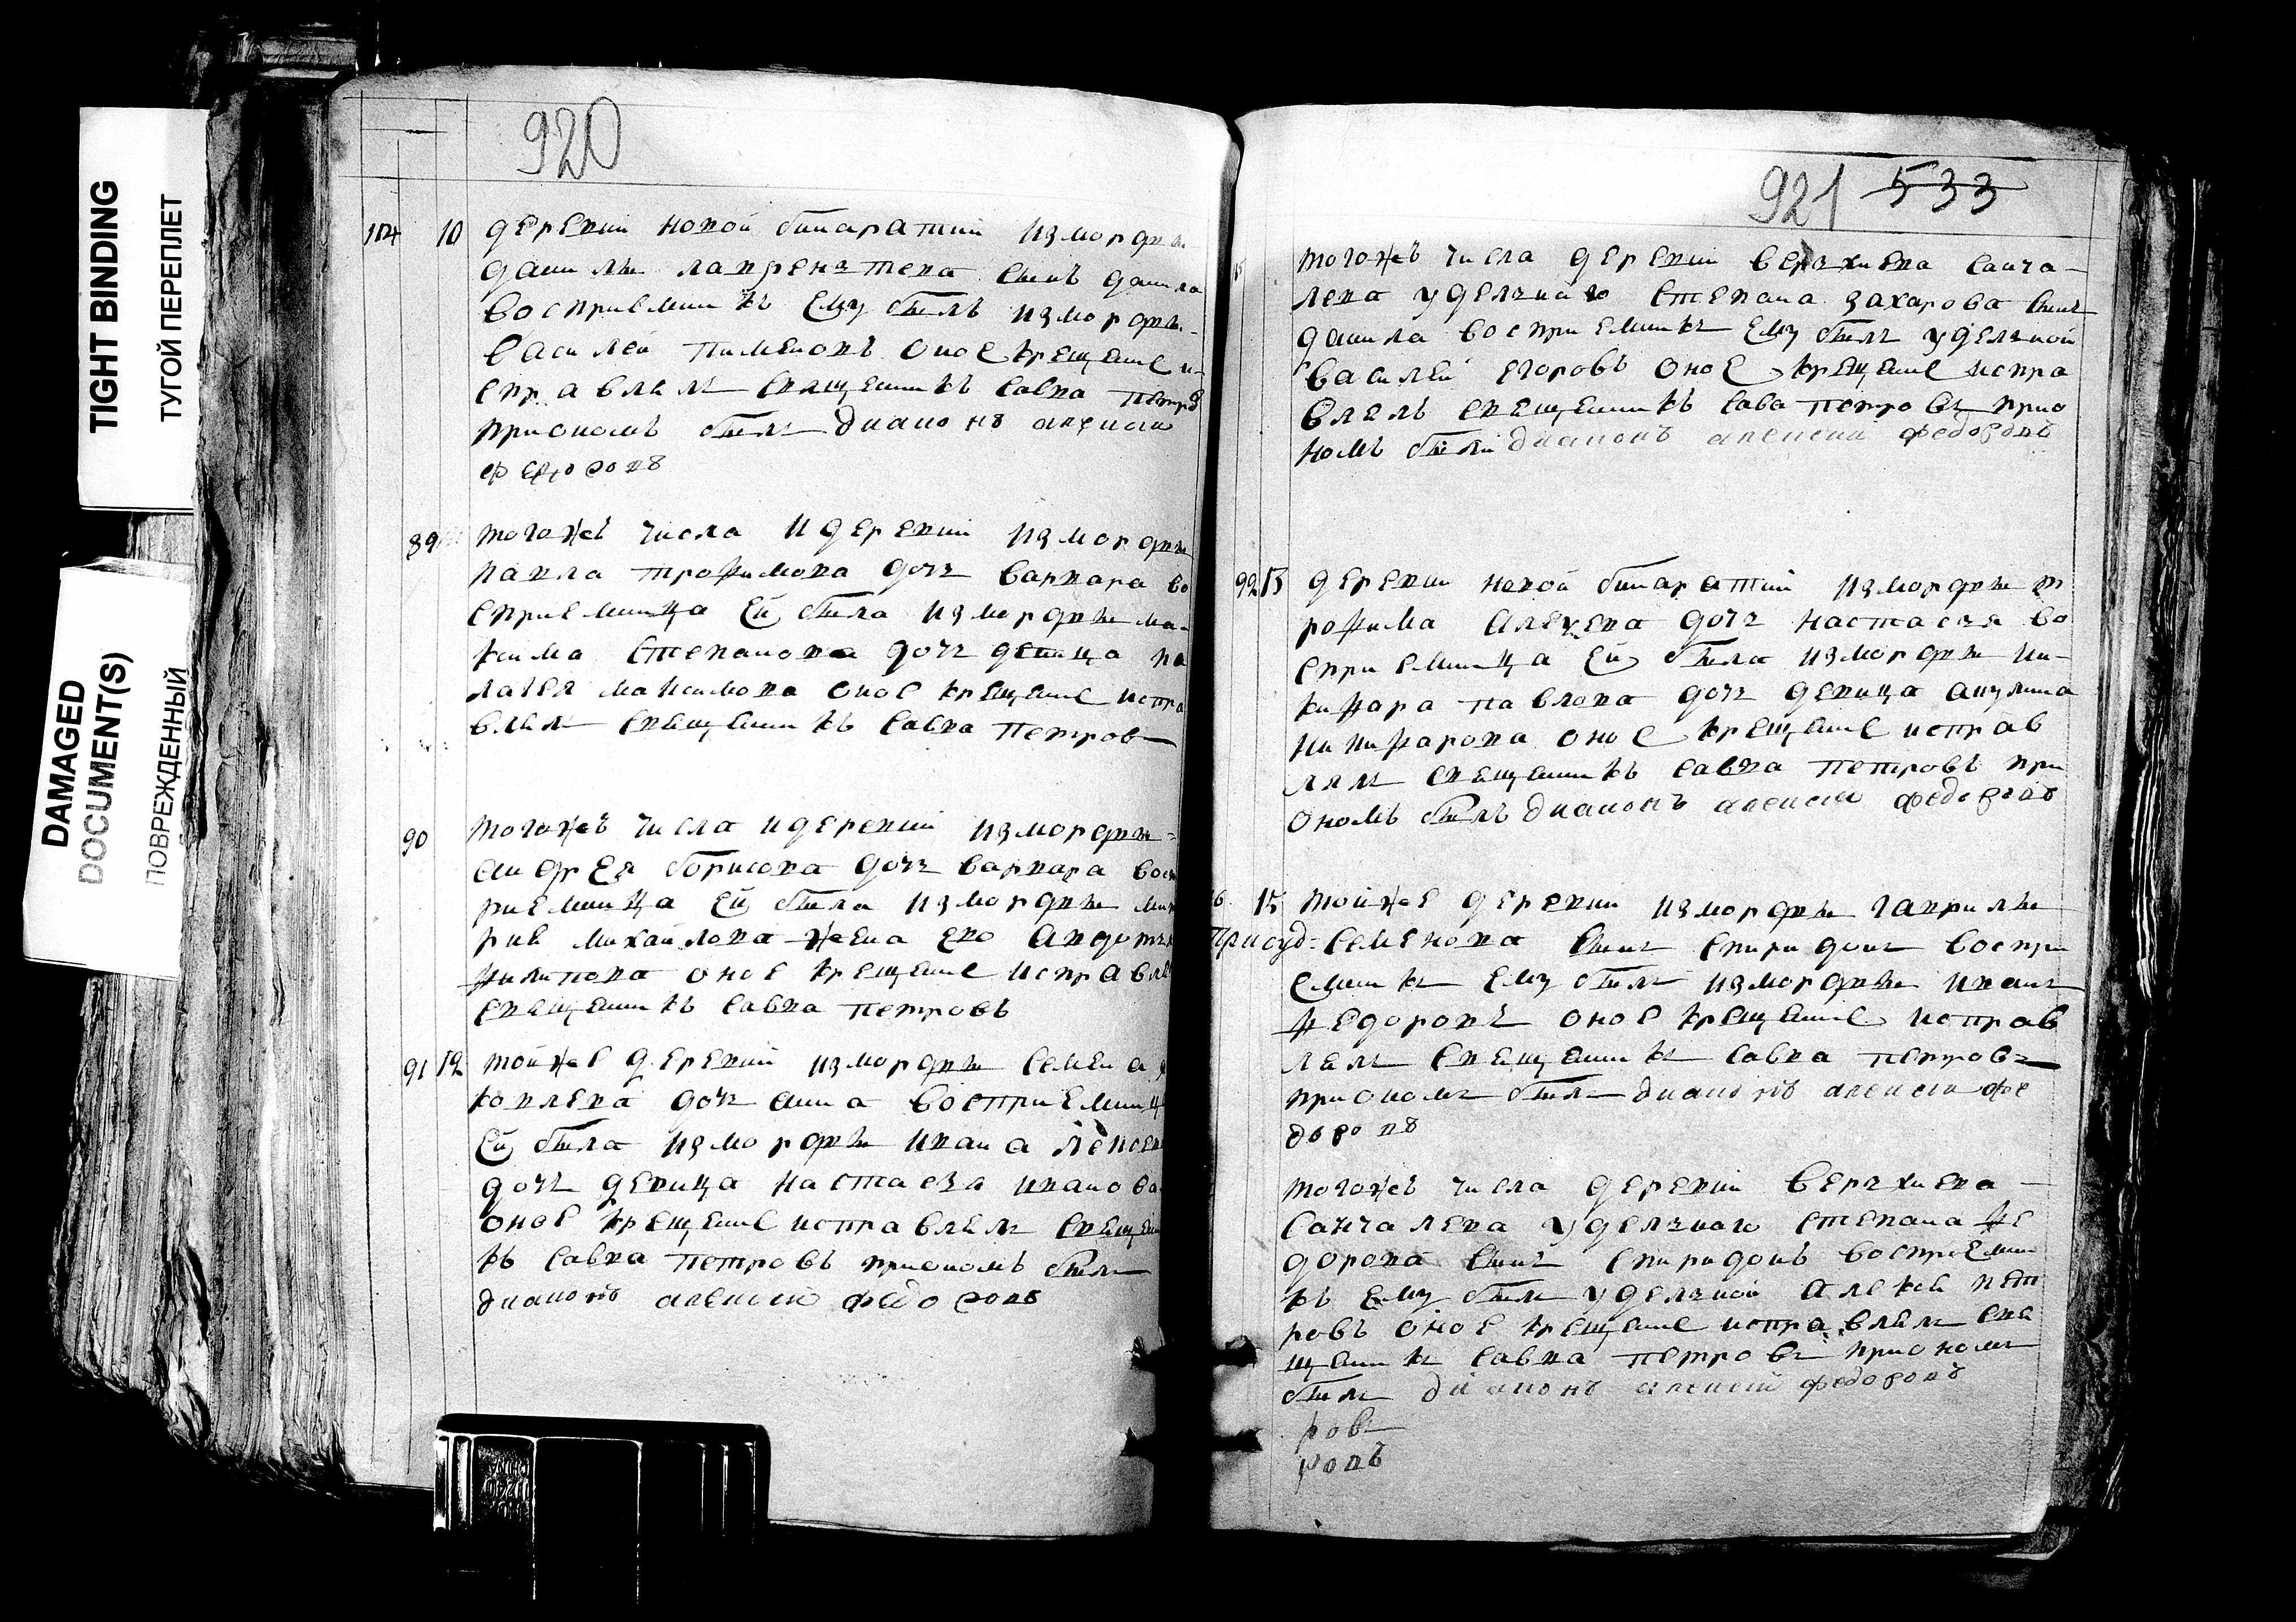 TIGHT BINDING
ТУГОЙ ПЕРЕПЛЕТ
DAMAGED
DOCUMENT(S)
ПОВРЕЖДЕННЫЙ
920
104 10 деревни новой бинаратки из мордвы
данилы лаврентева сынъ данила
восприемникъ ему былъ из мордвы
василей пименовъ оное крещение и
справлялъ священникъ савва петров
приономъ былъ диаконъ алексеи
федоровъ
89 тогожъ числа и деревни из мордвы
павла трофимова дочь варвара во
сприемница ей была из мордвы ма-
ксима степанова дочь девица па
лагея максимова оное крещение испра
влял священникъ савва петров
90 тогожъ числа и деревни из мордвы
андрея борисова дочь варвара восп
риемница ей была из мордвы
михайлова жена ево авдотья
филипова оное крещение исправля
священникъ савва петровъ
91 12 тойже деревни из мордвы семена я
ковлева дочь анна восприемниц
ей была из мордвы ивана
дочь девица настасья ивано ва
оное крещение исправлялъ священни
къ савва петровъ приономъ былъ
диаконъ алексеи федоровъ
921 533
тогожъ числа деревни верхнева санча-
лева удельнаго степана захарова сынъ
данила восприемникъ ему былъ удельной
василей егоровъ оное крещение испра
влялъ священникъ сава петровъ прио
номъ были диаконъ алексеи федоровъ
92 13 деревни новой бинаратки из мордвы т
рофима алексева дочь настасья во
сприемница ей была из мордвы ни-
кифара павлова дочь девица акулина
никифарова оное крещение исправ
лялъ священникъ савва петровъ при
ономъ былъ диаконъ алексеи федоровъ
15 тойже деревни из мордвы гаврилы
семенова сынъ спиридонъ воспри
емникъ ему былъ из мордвы иванъ
федоровъ оное крещение исправ
лялъ священникъ савва петровъ
приономъ былъ диаконъ алексеи фе
доровъ
тогожъ числа деревни верхнева
санчалева удельнаго степана фе
дорова сынъ спиридонъ восприемни
къ ему былъ удельной алексей пет
ровъ оное крещение исправлялъ свя
щенникъ савва петровъ приономъ
былъ диаконъ алексей федоровъ
ровъ
ровъ